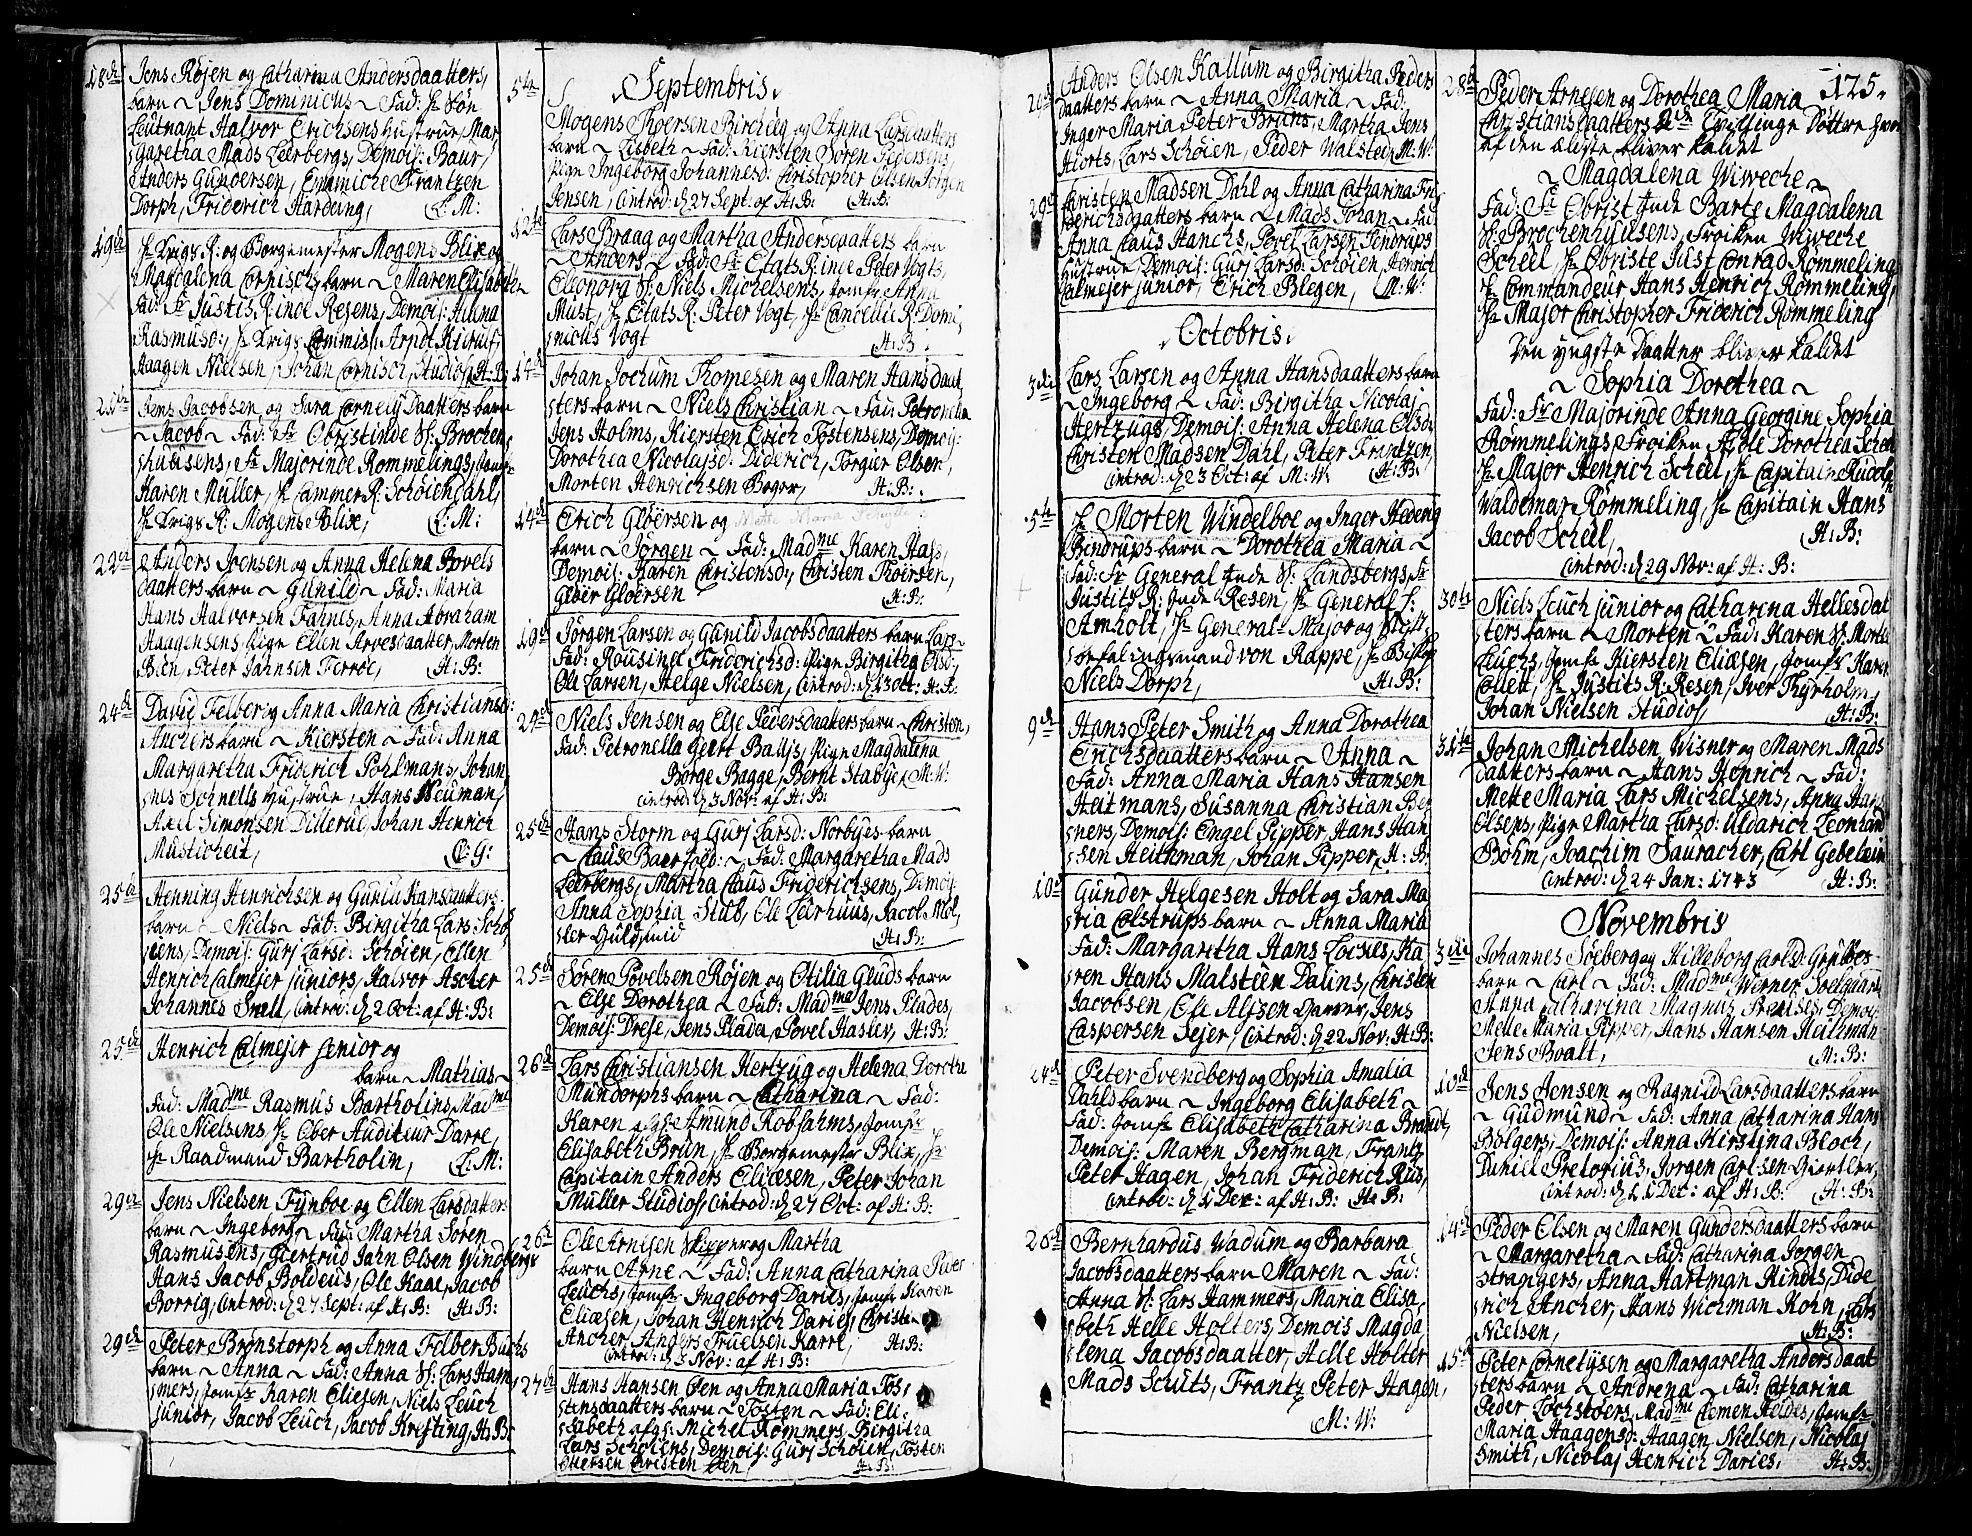 18de Jens Røjen og Catharina Andersdaatters
barn ~ Jens Dominicus ~ Fad: Fr Søn
Leutnant Halvor Erichsens Hustrue, Mar,
garetha Mads Leerbergs, Demois: Baur,
Anders Gundersen, Emmiche Frantzen
Dorph, Friderich Harding, C: M:
19de Hr Krigs R: og Borgemester Mogens Blix og
Magdalena Cornisch barn ~ Maren Elisabeth ~
Fad: Fr Justits R: inde Resens, Demois: Anna
Rasmusd: Hr Krigs Commis: Arndt
Haagen Nielsen, Johan Cornisch, Studios: H: B:
Jens Jacobsen og Sara Cornely Daatters barn
~ Jacob ~ Fad: Fr Obristinde S: Brochen
huusens, Fr Majorinde Rømmelings, Jomfr
Karen Müller, Hr Cammer R: Schøiendahl,
Hr Krigs R: Mogens Blix, C: M:
22de Anders Joensen og Anna Helena Povels
daatters barn ~ Gunild ~ Fad: Maria
Hans Halvorsen Farnes, Anna Abraham
Haagensens, Pige Ellen Arvesdaatter, Morten
Bien, Peter Jahnsen Ferroe, H: B:
24de David Felber og Anna Maria Christiansd:
Anchers barn ~ Kiersten ~ Fad: Anna
Margaretha Friderich Pohlmans, Johan
nes Schnells Hustrue, Hans Neuman,
Axel Simonsen Dillerud, Johan Henrich
Musticheit, C: G:
25de Henning Henrichsen og Guriæ Hansdaatters
barn ~ Niels ~ Fad: Birgitha Lars Schø
iens, Demois: Gurj Larsd: Schøien, Ellen
Henrich Calmejer juniors, Halvor Ascher
Johannes Snell, Introd: d 2 Oct: af H: B:
25de Henrich Calmejer senior og
barn ~ Mathias ~
Fad: Madme Rasmus Bartholins, Madme
Ole Nielsens, Hr Ober Auditeur Darre,
Hr Raadmand Bartholin, C: M:
29de Jens Nielsen Fynboe og Ellen Larsdatters
barn ~ Ingeborg ~ Fad: Martha Søren
Rasmusens, Giertrud Jahn Olsen Windbergs
Hans Jacob Boldeus, Ole Kaae, Jacob
Borrig, Introd: d 27 Sept: af H: B: H: B:
29de Peter Brønstorph og Anna Felber Buchs
barn ~ Anna ~ Fad: Anna S: Lars Ham,
mers, Jomfr Karen Eliesen, Niels Leuch
junior, Jacob Leuch, Jacob Kresting, H: B:
Septembris
5te Mogens Thoersen Birchely og Anna Larsdaatters
barn ~ Lisbeth ~ Fad: Kiersten Søren Pedersens,
Pige Ingeborg Johannesd: Christopher Olsen, Jørgen
Jensen, Introd: d 27 Sept: af H: B: H: B:
12te Lars Braag og Martha Andersdatters barn
~ Anders ~ Fad: Fr Etats R: inde Peter Vogts,
Eleonora S: Niels Michelsens, Jomfr Anna
Must, Hr Etats R: Peter Vogt, Hr Cancelie R: Domi
nicus Vogt H: B:
14de Johan Jochum Thomesen og Maren Hansdaat,
ters barn ~ Niels Christian ~ Fad: Petronella
Jens Holms, Kiersten Erich Tostensens, Demois:
Dorothea Nicolajsd: Diderich, Torgier Olsen,
Morten Henrichsen Bager, H: B:
14de Erich Gløersen og Mette Maria
barn ~ Jørgen ~ Fad: Madme Karen Hals,
Demois: Karen Christensd:, Christen Thoersen,
Gløer Gløersen H: B:
19de Jørgen Larsen og Gunild Jacobsdaatters barn Lars ~
Fad: Rousinel Friderichsd: Pige Birgitha Olsd:,
Ole Larsen, Helge Nielsen, Introd: d 13 Oct: H: B:
24de Niels Jensen og Else Pedersdaatters barn ~ Christen,
Fad: Petronella Geebt Balljs, Pige Magdalena
Børge Bagge, Bernt Stabye, M: W:
Introd: d 3 Nov: af H: B:
25de Hans Storm og Gurj Larsd: Norbyes barn
~ Claus Baer ~ Fad: Margaretha Mads
Leerbergs, Martha Claus Friderichsens, Demois:
Anna Sophia Stub, Ole Leerhuus, Jacob Møl,
ler Guldsmid H: B:
25de Søren Povelsen Røjen og Otilia Gluds barn
~ Else Dorothea ~ Fad: Madme Jens Plades,
Demois: Drese, Jens Plade, Povel Hasler, H: B:
26de Lars Christiansen Hertzug og Helena Dorothe
Mundorphs barn ~ Catharina ~ Fad:
Karen afg: Amund Robsahms, Jomfr
Elisabeth Brun, Hr Borgemester Blix, Hr
Capitain Anders Eliæsen, Peter Johan
Müller Studios, Introd: d 27 Oct: af H: B:
26de Ole Arnesen Skipper og Martha
barn Arne ~ Fad: Anna Catharina Peder
Leuchs, Jomfr Ingeborg Daries, Jomfr Karen
Eliæsen, Johan Henrich Daries, Christen
Ancher, Anders Truelsen Karre, H: B:
Introd: d 3 Nov: af H: B:
27de Hans Hansen Øen og Anna Maria Tos,
tensdaatters barn ~ Tosten ~ Fad: Eli
sabeth afg: Michel Rommers, Birgitha
Lars Schøiens, Demois: Gurj Schøien, Tosten
Iversen, Christen Øen, H: B:
28de Anders Olsen Kallum og Birgitha Peders
daatters barn ~ Anna Maria ~ Fad:
Inger Maria Peter Bruns, Martha Jens
Hiorts, Lars Schøien, Peder Walsted, M: W:
29de Christen Madsen Dahl og Anna Catharina Fri
derichsdaatters barn ~ Mads Johan ~ Fad:
Anna Claus Hanchs, Povel Larsen Pindrups
Hustrue, Demois: Gurj Larsd: Schøien, Henrich
Calmejer junior, Erich Blegen, M: W:
Octobris
3die Lars Larsen og Anna Hansdaatters barn
~ Ingeborg ~ Fad: Birgitha Nicolaj
Hertzugs, Demois: Anna Helena Olsd:
Christen Madsen Dahl, Peter Frantzen,
Introd: d 23 Oct: af M: W: H: B:
5te Hr Morten Windelboe og Inger Hedevig
Bindrups barn ~ Dorothea Maria ~
Fad: Fr General Inde S: Landsbergs, Fr
Justits R: Inde Resen, Hr General L:
Arnholt, Hr General-Major og Stift,
befalingsmand von Rappe, Hr Bisshop
Niels Dorph, H: B:
9de Hans Peter Smith og Anna Dorothea
Erichsdaatters barn ~ Anna ~
Fad: Anna Maria Hans Hansen
Heitmans, Susanna Christian Ber
ners, Demois: Engel Pipper, Hans Han
sen Heithman, Johan Pipper, H: B:
10de Gunder Helgesen Holt og Sara Ma
ria Colstrups barn ~ Anna Maria
Fad: Margaretha Hans Lockes, Ka
ren Hans Malsteen Dalins, Christen
Jacobsen, Ole Alfsen Garver, Jens
Caspersen Sejer, Introd: d 22 Nov: H: B:
24de Peter Svendberg og Sophia Amalia
Dahls barn ~ Ingeborg Elisabeth ~
Fad: Jomfr Elisabeth Catharina Brandt,
Demois: Maren Bergman, Frantz
Peter Hagen, Johan Friderich Rus,
Introd: d 1 Dec: af H: B: H: B:
26de Bernhardus Wadum og Barbara
Jacobsdaatters barn Maren ~ Fad:
Anna S: Lars Hammers, Maria Elisa,
beth Helle Holters, Demois Magda
lena Jacobsdaatter, Helle Holter
Mads Schuts, Frantz Peter Hagen,
M: W:
125.
28de Peder Arnesen og Dorothea Maria
Christiansdaatters Tvillinge Døttre hvor
af den ældste bliver kaldet
~ Magdalena Wiweche ~
Fad: Fr Obrist Inde Barte Magdalena
S: Brochenhuusens, Frøiken Wiweche
Scheel, Hr Obriste Just Conrad Rømmeling
Hr Commandeur Hans Henrich Rømmeling,
Hr Major Christopher Friderich Rømmeling
Den yngste Daatter bliver kaldet
~ Sophia Dorothea ~
Fad: Fr Majorinde Anna Georgine Sophia
Rømmelings, Frøiken Dorothea Scheel
Hr Major Henrich Scheel, Hr Capitain Rudolf
Waldemar Rømmeling, Hr Capitain Hans
Jacob Scheel, H: B:
Introd: d 29 Nov: af H: B:
30te Niels Leuch junior og Catharina Hellesdat
ters barn ~ Morten ~ Fad: Karen S: Morten
Leuchs, Jomfr Kiersten Eliæsen, Jomfr Karen
Collett, Hr Justits R: Resen, Iver Thyrholm,
Johan Nielsen Studios H: B:
31te Johan Michelsen Wisner og Maren Mads
daatters barn ~ Hans Henrich ~ Fad:
Mette Maria Lars Michelsens, Anna Hans
Olsens, Pige Martha Larsd: Uldarich Leonhard
Bøhm, Joachim Sauracher, Carl Gebelein
Introd: d 24 Jan: 1743 H: B:
Novembris
3die Johannes Søeberg og Hilleborg Carlsd: Grubbes
barn ~ Carl ~ Fad: Madme Werner Soelgaard
Anna Catharina Magnus Demois:
Mette Maria Pipper, Hans Hansen Heitman
Jens Boalt, M: B:
10de Jens Jensen og Ragnild Larsdaatters barn
~ Gudmund ~ Fad: Anna Catharina Hans
Bølgers, Demois: Anna Kirstina Bloch,
Daniel Pretorius, Jørgen Carlsen Giortler,
Introd: d 11 Dec: af H: B: H: B:
14de Peder Olsen og Maren Gundersdaatters barn
~ Margaretha ~ Fad: Catharina Jørgen
Strangers, Anna Hartman Kindts, Dide
rich Ancher, Hans Wichman Kohn, Lars
Nielsen, H: B:
15de Peter Cornelysen og Margaretha Andersdaat
ters barn ~ Andrena ~ Fad: Catharina
Peder Lochstøers, Madme Clemen Heldes, Jomfr
Maria Haagensd: Haagen Nielsen, Nicolaj
Smith, Nicolaj Henrich Daries, H: B: